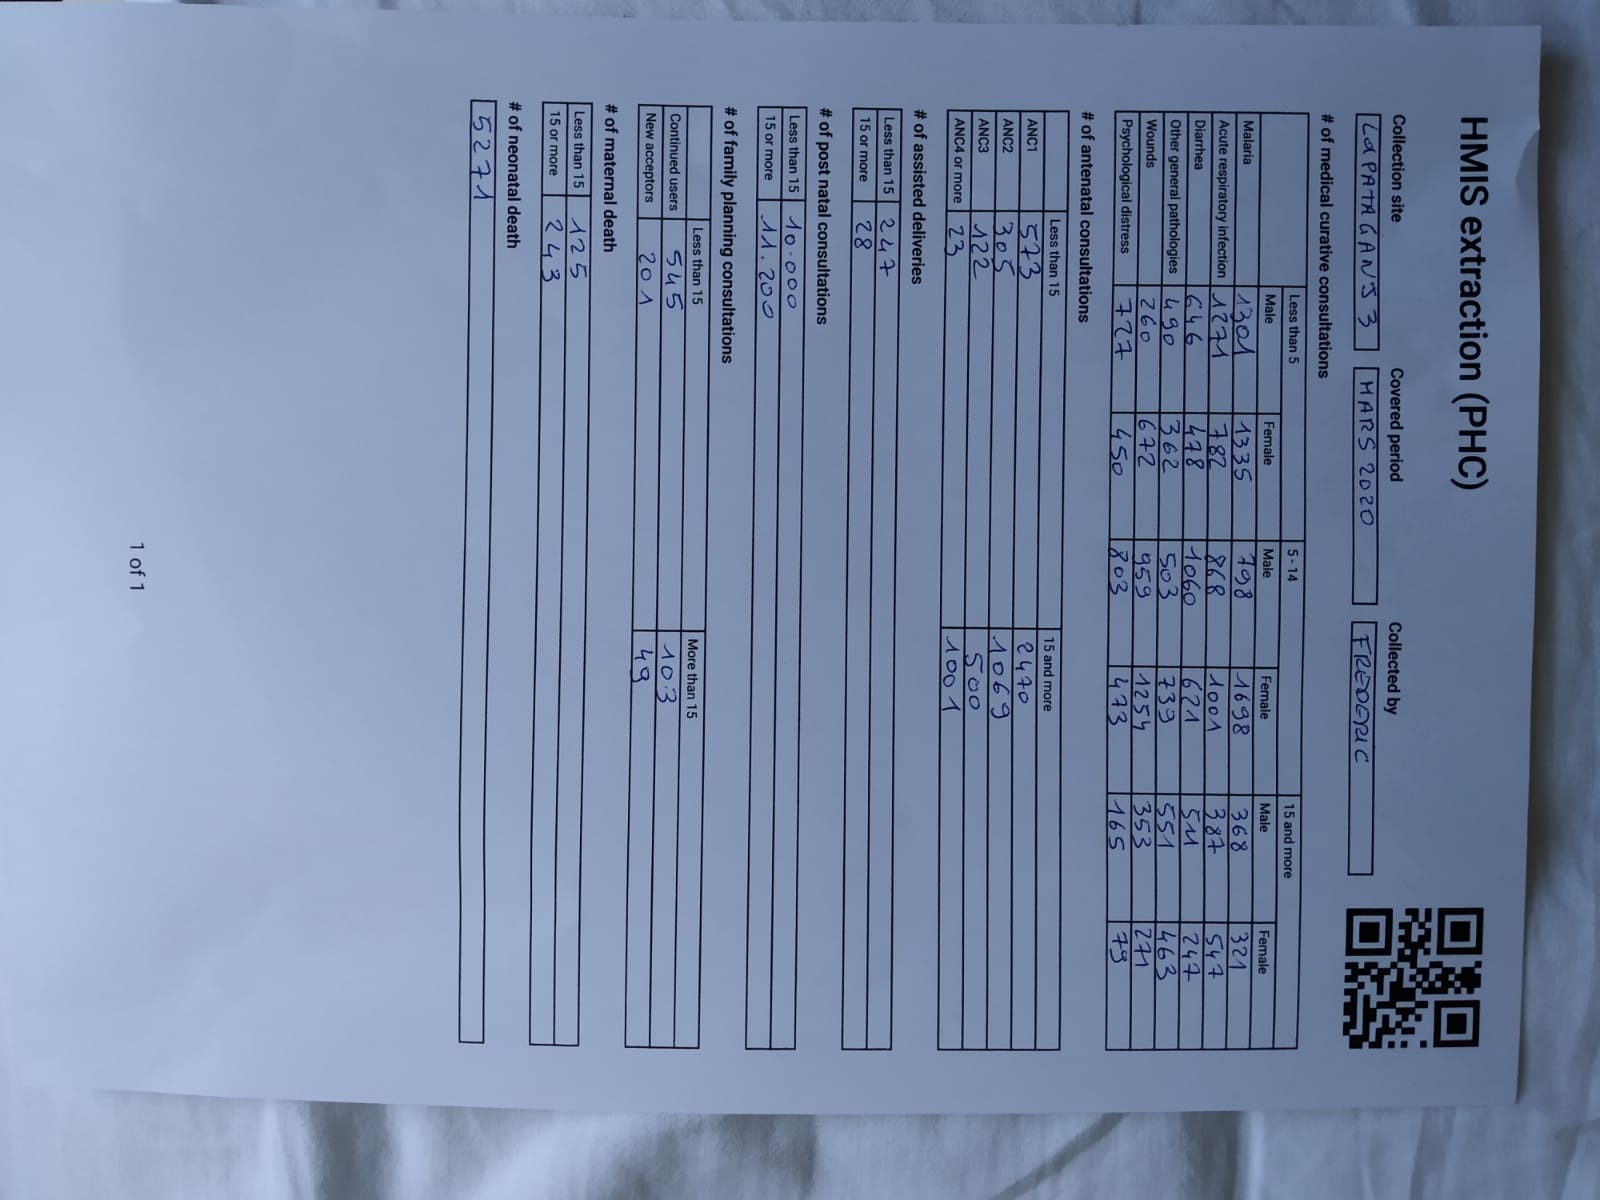 HMIS extraction (PHC)
Collection site Covered period Collected by
LAPATAGANS 3 MARS 2020 FREDERIC
# of medical curative consultations
Less than 5 5 - 14 15 and more
Male Female Male Female Male Female
Malaria 1301 1335 798 1698 368 321
Acute respiratory infection 1271 782 868 1001 387 547
Diarrhea 646 478 1060 621 511 247
Other general pathologies 490 362 503 739 551 463
Wounds 260 672 959 1254 353 271
Psychological distress 727 450 803 473 165 79
# of antenatal consultations
Less than 15 15 and more
ANC1 573 2470
ANC2 305 1069
ANC3 122 500
ANC4 or more 23 1001
# of assisted deliveries
Less than 15 247
15 or more 28
# of post natal consultations
Less than 15 10.000
15 or more 11.200
# of family planning consultations
Less than 15 More than 15
Continued users 545 103
New acceptors 201 49
# of maternal death
Less than 15 125
15 or more 243
# of neonatal death
5271
1 of 1